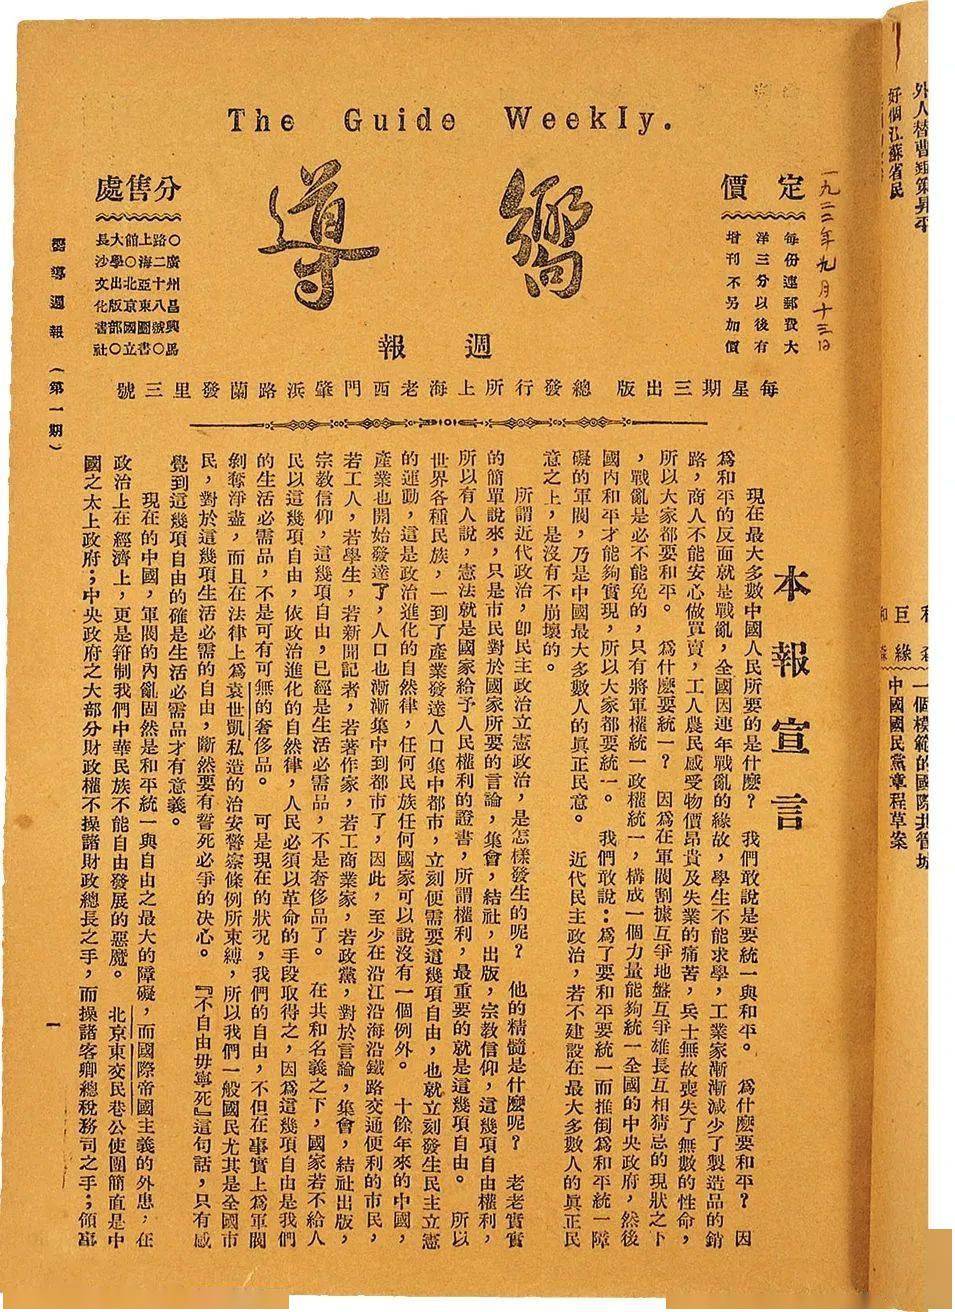 The Guide Weekly.
嚮導
週報
定價
每份連郵費大
洋三分以後有
增刊不另加價
一九二二年九月十三日
分售處
〇廣州昌興馬
路二十八號〇
上海亞東圖書
館〇北京國立
大學出版部〇
長沙文化書社
每星期三出版 總發行所上海老西門肇浜路蘭發里三號
本報宣言
現在最大多數中國人民所要的是什麽? 我們敢說是要統一與和平。 爲什麽要和平? 因
爲和平的反面就是戰亂,全國因連年戰亂的緣故,學生不能求學,工業家漸漸減少了製造品的銷
路,商人不能安心做買賣,工人農民感受物價昂貴及失業的痛苦,兵士無故喪失了無數的性命,
所以大家都要和平。 爲什麽要統一? 因爲在軍閥割據互爭地盤互爭雄長互相猜忌的現狀之下
,戰亂是必不能免的,只有將軍權統一政權統一,構成一個力量能夠統一全國的中央政府,然後
國內和平才能夠實現,所以大家都要統一。 我們敢說:爲了要和平要統一而推倒爲和平統一障
礙的軍閥,乃是中國最大多數人的眞正民意。 近代民主政治,若不建設在最大多數人的眞正民
意之上,是沒有不崩壞的。
所謂近代政治,卽民主政治立憲政治,是怎樣發生的呢? 他的精髓是什麽呢? 老老實實
的簡單說來,只是市民對於國家所要的言論,集會,結社,出版,宗教信仰,這幾項自由權利,
所以有人說,憲法就是國家給予人民權利的證書,所謂權利,最重要的就是這幾項自由。 所以
世界各種民族,一到了產業發達人口集中都市,立刻便需要這幾項自由,也就立刻發生民主立憲
的運動,這是政治進化的自然律,任何民族任何國家可以說沒有一個例外。 十餘年來的中國,
產業也開始發達了,人口也漸漸集中到都市了,因此,至少在沿江沿海沿鐵路交通便利的市民,
若工人,若學生,若新聞記者,若著作家,若工商業家,若政黨,對於言論,集會,結社出版,
宗教信仰,這幾項自由,已經是生活必需品,不是奢侈品了。 在共和名義之下,國家若不給人
民以這幾項自由,依政治進化的自然律,人民必須以革命的手段取得之,因爲這幾項自由是我們
的生活必需品,不是可有可無的奢侈品。 可是現在的狀况,我們的自由,不但在事實上爲軍閥
剝奪淨盡,而且在法律上爲袁世凱私造的治安警察條例所束縛,所以我們一般國民尤其是全國市
民,對於這幾項生活必需的自由,斷然要有誓死必爭的決心。 『不自由毋寧死』這句話,只有感
覺到這幾項自由的確是生活必需品才有意義。
現在的中國,軍閥的內亂固然是和平統一與自由之最大的障礙,而國際帝國主義的外患,在
政治上在經濟上,更是箝制我們中華民族不能自由發展的惡魔。 北京東交民巷公使團簡直是中
國之太上政府;中央政府之大部分財政權不操諸財政總長之手,而操諸客卿總稅務司之手;領事
嚮導週報 (第一期)
一
好個江蘇省民
巨緣
一個模範的國際共管城
中國國民黨章程草案